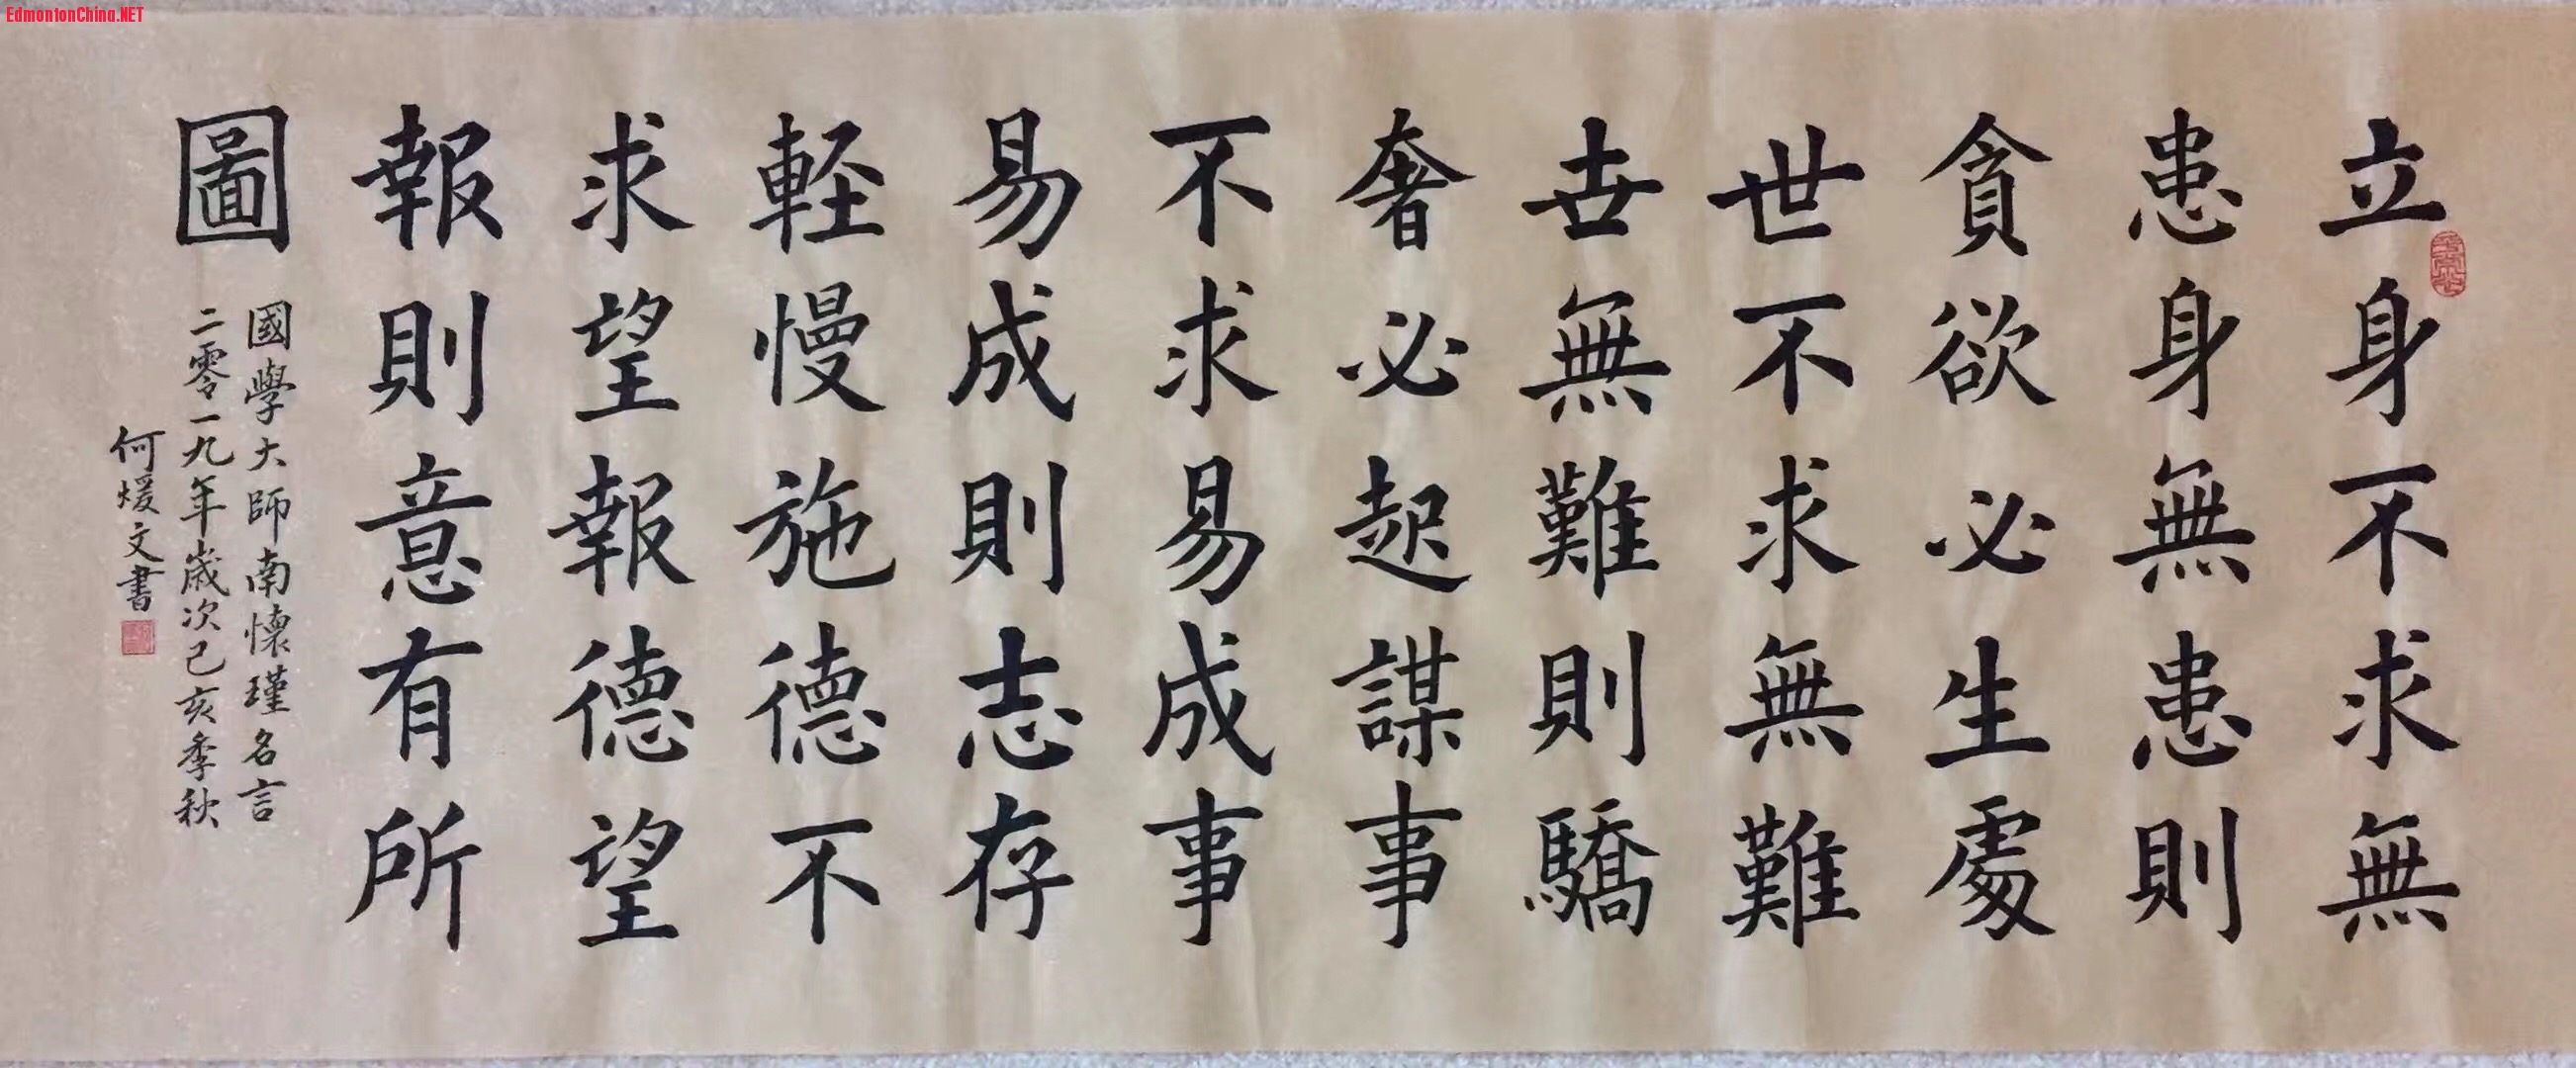 EdmontonChina.NET
立身不求無
患身無患則
貪欲必生處
世不求無難
世無難則驕
奢必起謀事
不求易成事
易成則志存
輕慢施德不
求望報德望
報則意有所
圖
國學大師南懷瑾名言
二零一九年歲次己亥季秋
何煖文書